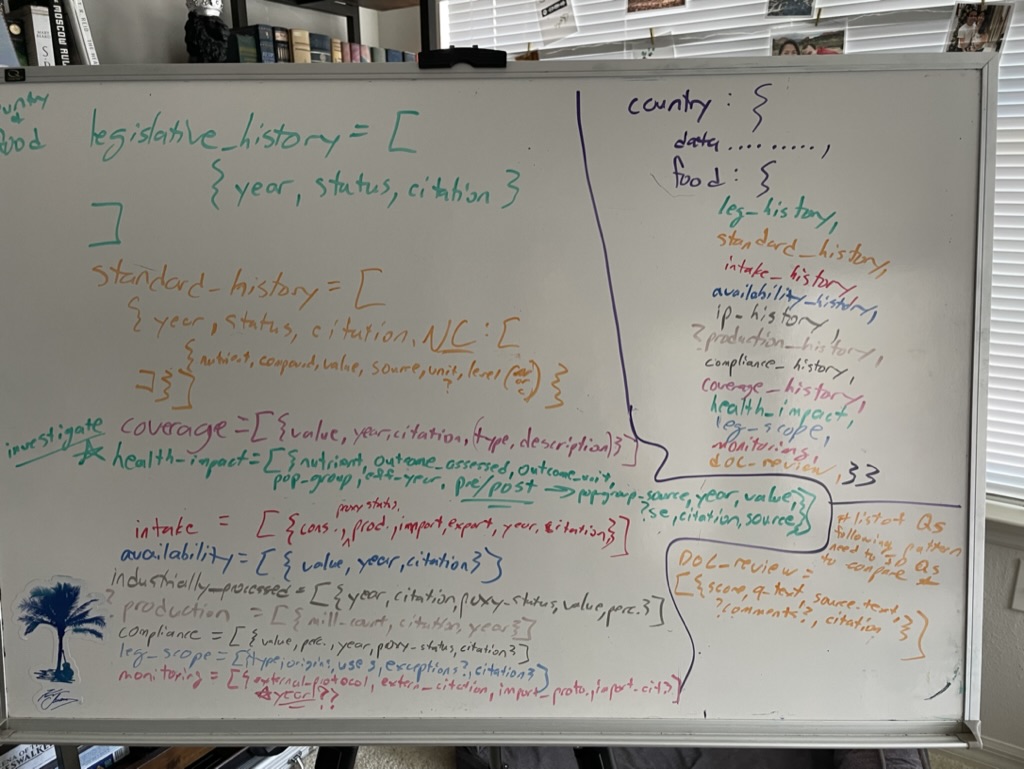 MOSCOW RUL
country
&
food
legislative_history = [
{ year, status, citation }
]
standard_history = [
{ year, status, citation, NC : [
{ nutrient, compound, value, source, unit, level
?
} ] } ]
investigate
coverage = [ { value, year, citation, (type, description) } ]
health_impact = [ { nutrient, outcome_assessed, outcome_unit,
pop_group, eff_year, pre/post → pop_group_source, year, value,
?se, citation, source, } ]
proxy status,
intake = [ { cons., prod., import, export, year, citation } ]
availability = [ { value, year, citation } ]
industrially_processed = [ { year, citation, proxy-status, value, perc. } ]
? production = [ { mill-count, citation, year } ]
compliance = [ { value, perc., year, proxy-status, citation } ]
leg_scope = [ { type, origin, use, exceptions?, citation } ]
monitoring = [ { external_protocol, extern_citation, import_proto, import_cit } ]
year ??
country : {
data .........,
food : {
leg_history,
standard_history,
intake_history,
availability_history,
ip_history,
? production_history,
compliance_history,
coverage_history,
health_impact,
leg_scope,
monitoring,
DOC_review, } }
# list of Qs
following pattern
need to so Qs
to compare
DOC_review =
[ { score, q_text, source_text,
? comments?, citation } ]